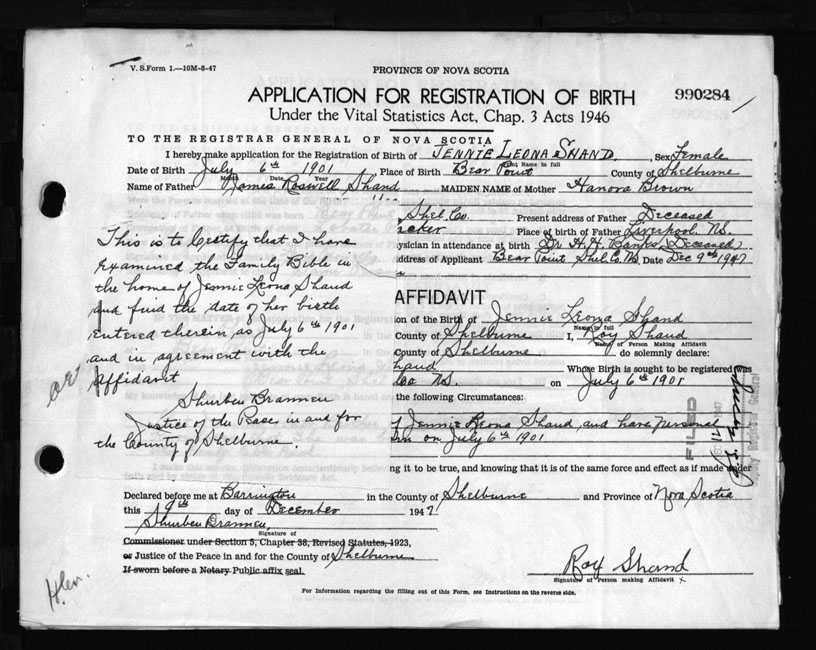 V. S. Form 1.—10M-8-47
PROVINCE OF NOVA SCOTIA
990284
APPLICATION FOR REGISTRATION OF BIRTH
Under the Vital Statistics Act, Chap. 3 Acts 1946
TO THE REGISTRAR GENERAL OF NOVA SCOTIA
I hereby make application for the Registration of Birth of JENNIE LEONA SHAND. Sex Female
Print Name in full
Date of Birth July 6th 1901, Place of Birth Bear Point County of Shelburne
Month Date Year
Name of Father James Roswell Shand MAIDEN NAME of Mother Hanora Brown
Shel Co. Present address of Father Deceased
Place of birth of Father Liverpool NS.
ysician in attendance at birth Dr H. H. Banks (Deceased)
ddress of Applicant Bear Point Shel Co NS Date Dec 9th 1947
This is to Certify that I have
examined the Family Bible in
the home of Jennie Leona Shand
and find the date of her birth
entered therein as July 6th 1901
and in agreement with the
affidavit
Shurben Brannen
Justice of the Peace in and for
the County of Shelburne.
AFFIDAVIT
on of the Birth of Jennie Leona Shand
Name in full
County of Shelburne I, Roy Shand
Name of Person Making Affidavit
County of Shelburne do solemnly declare:
hand Whose Birth is sought to be registered was
Co NS. on July 6th 1901
the following Circumstances:
f Jennie Leona Shand and have personal
rn on July 6th 1901
ng it to be true, and knowing that it is of the same force and effect as if made under
FILED
Declared before me at Barrington in the County of Shelburne and Province of Nova Scotia
this 9th day of December 1947
Shurben Brannen
Signature of
Commissioner under Section 5, Chapter 38, Revised Statutes, 1923,
or Justice of the Peace in and for the County of Shelburne
If sworn before a Notary Public affix seal.
Roy Shand
Signature of Person making Affidavit x
For Information regarding the filling out of this Form, see Instructions on the reverse side.